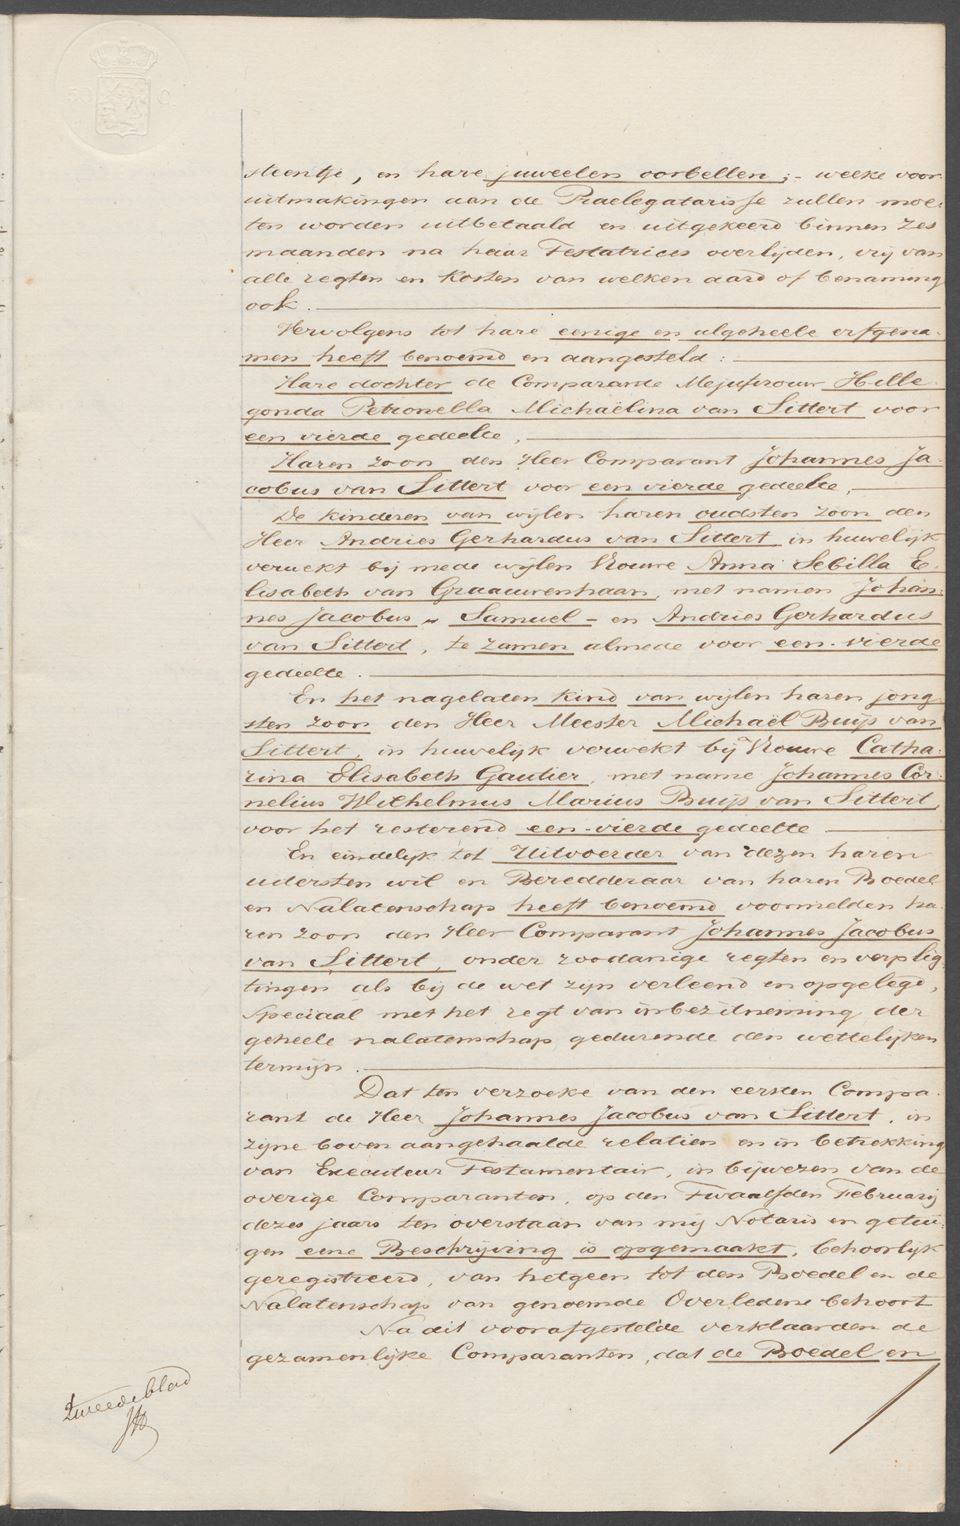 steentje, en hare juweelen oorbellen; - welke voor
uitmakingen aan de Praelegatarisse zullen moe-
ten worden uitbetaald en uitgekeerd binnen zes
maanden na haar Testatrices overlijden, vrij van
alle regten en kosten van welken aard of benaming
ook.
Vervolgens tot hare eenige en algeheele erfgena-
men heeft benoemd en aangesteld:
Hare dochter de Comparante Mejufvrouw Hille-
gonda Petronella Michaëlina van Sittert voor
een vierde gedeelte,
Haren zoon den Heer Comparant Johannes Ja-
cobus van Sittert voor een vierde gedeelte,
De kinderen van wijlen haren oudsten zoon den
Heer Andries Gerhardus van Sittert in huwelijk
verwekt bij mede wijlen Vrouwe Anna Sebilla E-
lisabeth van Graauwenhaan, met namen Johan-
nes Jacobus, Samuel - en Andries Gerhardus
van Sittert, te zamen almede voor een-vierde
gedeelte.
En het nagelaten kind van wijlen haren jong-
sten zoon den Heer Meester Michaël Buijs van
Sittert, in huwelijk verwekt bij Vrouwe Catha-
rina Elisabeth Gautier, met name Johannes Cor-
nelius Wilhelmus Marius Buijs van Sittert,
voor het resterend een-vierde gedeelte
En eindelijk tot Uitvoerder van dezen haren
uitersten wil en Beredderaar van haren Boedel
en Nalatenschap heeft benoemd voormelden ha-
ren zoon den Heer Comparant Johannes Jacobus
van Sittert, onder zoodanige regten en verplig-
tingen als bij de wet zijn verleend en opgelegd,
speciaal met het regt van inbezitneming der
geheele nalatenschap gedurende den wettelijken
termijn.
Dat ten verzoeke van den eersten Compa-
rant de Heer Johannes Jacobus van Sittert, in
zijne boven aangehaalde relatien en in betrekking
van Executeur Testamentair, in bijwezen van de
overige Comparanten, op den Twaalfden Februarij
dezes jaars ten overstaan van mij Notaris en getui-
gen eene Beschrijving is opgemaakt, behoorlijk
geregistreerd, van hetgeen tot den Boedel en de
Nalatenschap van genoemde Overledene behoort
Na dit voorafgestelde verklaarden de
gezamenlijke Comparanten, dat de Boedel en
tweede blad